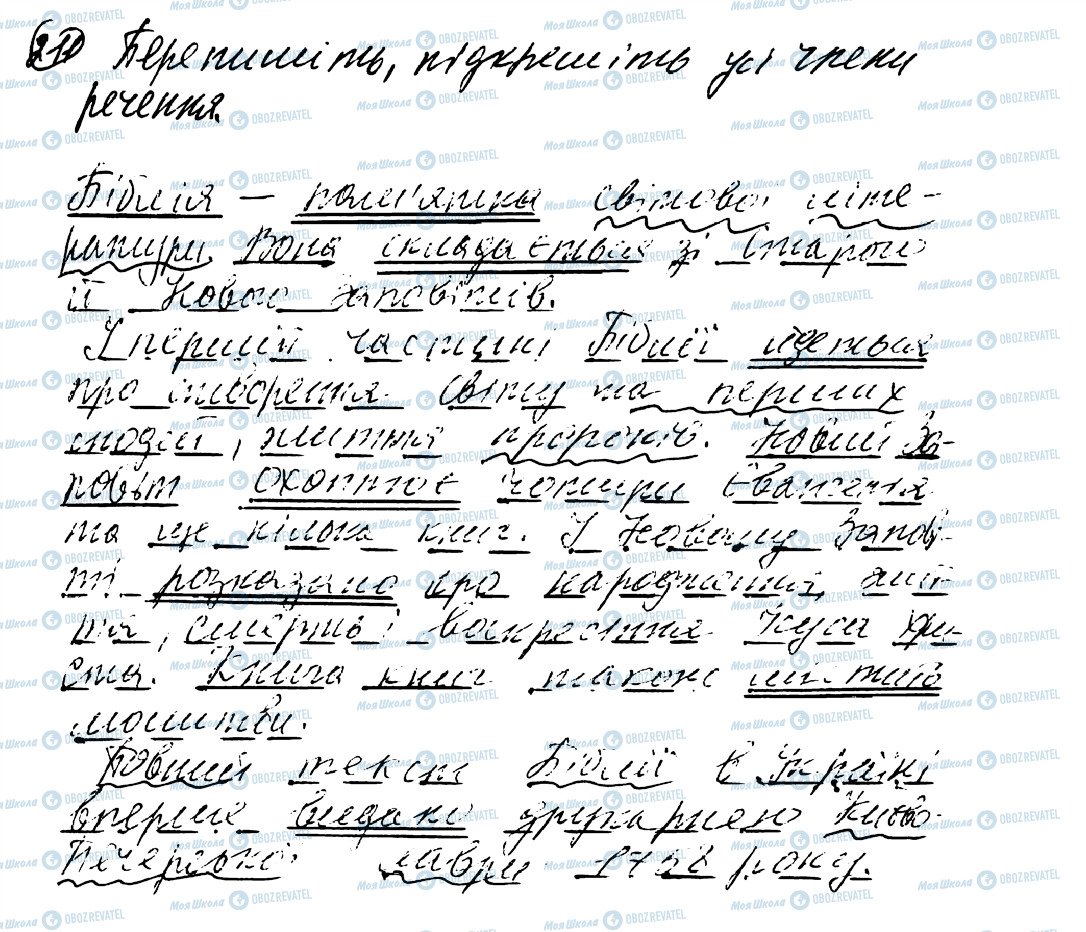 210 Перепишіть, підкресліть усі члени
речення.
Біблія – пам'ятка світової літе-
ратури. Вона складається зі Старого
й Нового Заповітів.
У першій частині Біблії йдеться
про створення світу та перших
людей, життя пророків. Новий За-
повіт охоплює чотири Євангелія
та ще кілька книг. У Новому Запові-
ті розказано про народження, жит-
тя, смерть і воскресіння Ісуса Хри-
ста. Книга книг також містить
молитви.
Повний текст Біблії в Україні
вперше видано друкарнею Києво-
Печерської лаври 1758 року.